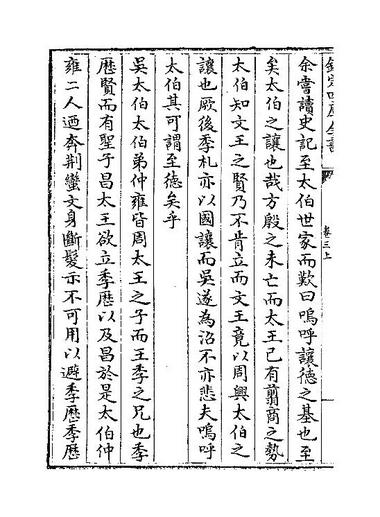 欽定四庫全書
卷三上
余嘗讀史記至太伯世家而歎曰嗚呼讓德之基也至
矣太伯之讓也哉方殷之未亡而太王已有翦商之勢
太伯知文王之賢乃不肯立而文王竟以周興太伯之
讓也厥後季札亦以國讓而吳遂為沼不亦悲夫嗚呼
太伯其可謂至德矣乎
吳太伯太伯弟仲雍皆周太王之子而王季之兄也季
歷賢而有聖子昌太王欲立季歷以及昌於是太伯仲
雍二人迺奔荆蠻文身斷髮示不可用以避季歷季歷